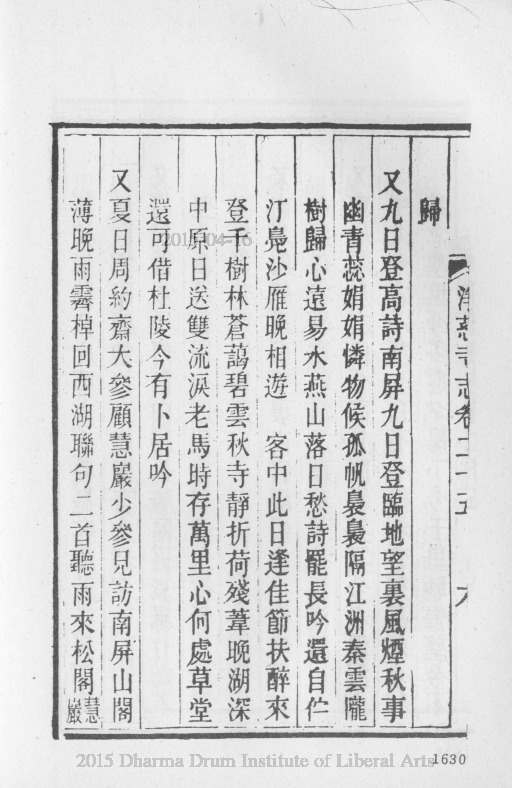 淨慈寺志卷二十五
歸
又九日登高詩南屏九日登臨地望裏風煙秋事
幽青蕊娟娟憐物候孤帆裊裊隔江洲秦雲隴
樹歸心遠易水燕山落日愁詩罷長吟還自伫
汀鳧沙雁晚相遊 客中此日逢佳節扶醉來
登千樹林蒼藹碧雲秋寺靜折荷殘葦晚湖深
中原日送雙流淚老馬時存萬里心何處草堂
還可借杜陵今有卜居吟
又夏日周約齋大參顧慧巖少參兄訪南屏山閣
薄晚雨霽棹回西湖聯句二首聽雨來松閣慧巖
2015-04-16
2015 Dharma Drum Institute of Liberal Arts
1630